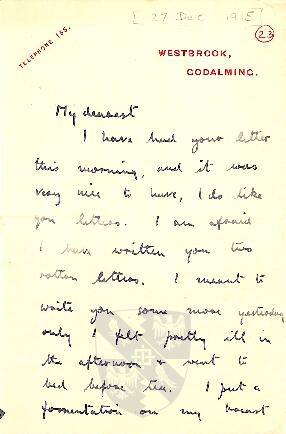 [27 Dec 1915]
(23)
TELEPHONE 155.
WESTBROOK,
GODALMING.
My dearest
I have had your letter
this morning, and it was
very nice to have, I do like
your letters. I am afraid
I have written you two
rotten letters. I meant to
write you some more yesterday
only I felt pretty ill in
the afternoon & went to
bed before tea. I put a
fomentation on my breast